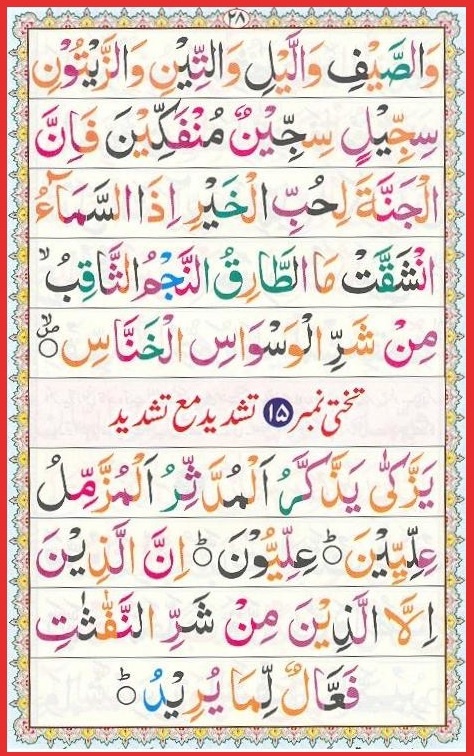 ٢٨
وَالصَّيْفِ وَالَّيْلِ وَالتِّيْنِ وَالزَّيْتُوْنِ
سِجِّيْلٍ سِجِّيْنٌ مُنْفَكِّيْنَ فَاِنَّ
الْجَنَّةَ لِحُبِّ الْخَيْرِ اِذَا السَّمَآءُ
انْشَقَّتْ مَا الطَّارِقُ النَّجْمُ الثَّاقِبُ ۙ
مِنْ شَرِّ الْوَسْوَاسِ الْخَنَّاسِ ۙ
تختی نمبر ۱۵ تشدید مع تشدید
يَزَّكّٰى يَذَّكَّرُ اَلْمُدَّثِّرُ اَلْمُزَّمِّلُ
عِلِّيِّيْنَ ؕ عِلِّيُّوْنَ ؕ اِنَّ الَّذِيْنَ
اِلَّا الَّذِيْنَ مِنْ شَرِّ النَّفّٰثٰتِ
فَعَّالٌ لِّمَا يُرِيْدُ ؕ